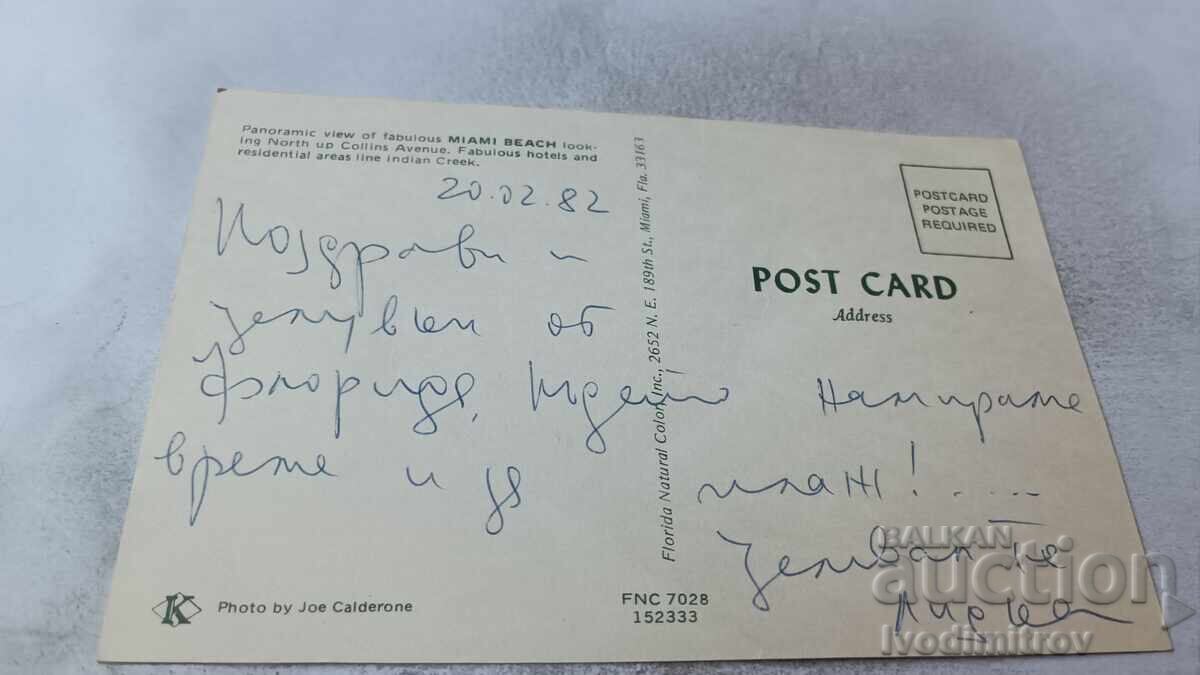 Panoramic view of fabulous MIAMI BEACH look-
ing North up Collins Avenue. Fabulous hotels and
residential areas line Indian Creek.
20.02.82
Поздрави и
целувки от
Флорида, където намираме
време и за плаж!....
Целувам те
Florida Natural Color, Inc., 2652 N. E. 189th St., Miami, Fla. 33163
POSTCARD
POSTAGE
REQUIRED
POST CARD
Address
K
Photo by Joe Calderone
FNC 7028
152333
BALKAN
auction
Ivodimitrov